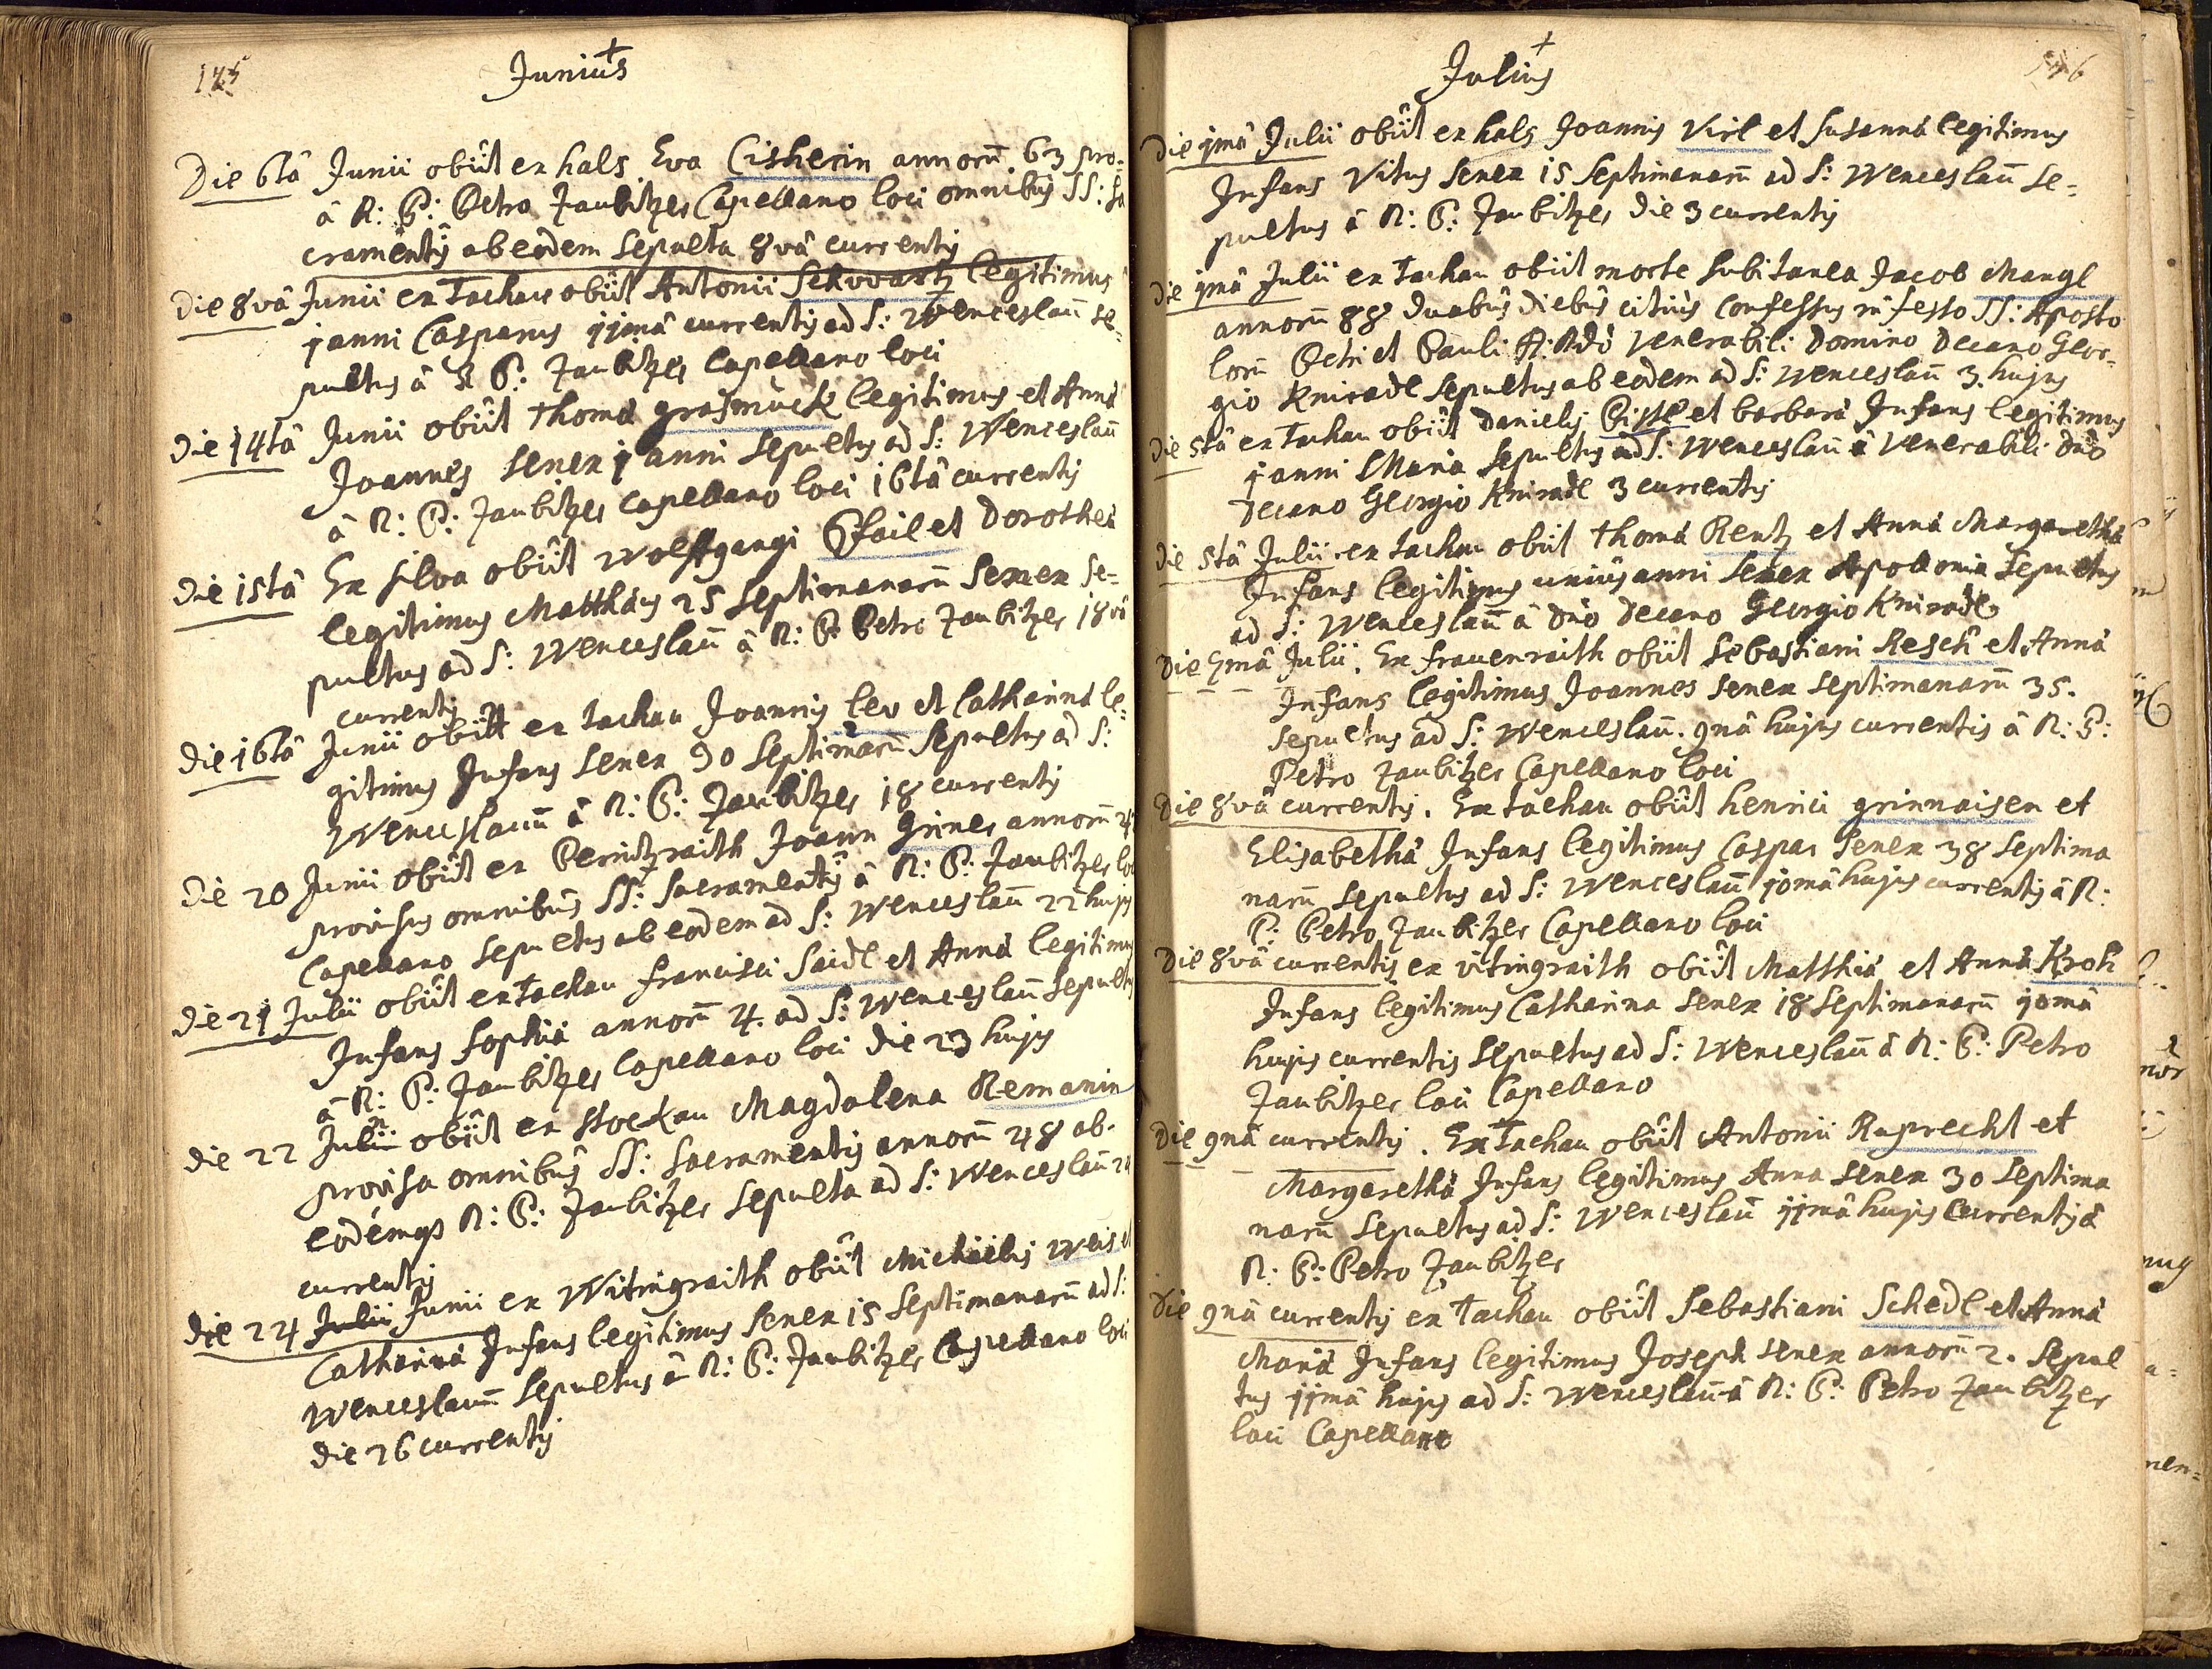 145
Junius
Die 6tâ Junii obiit ex hals Eva Cisherin annorũ 63 pro-
â R: P: Petro Zaubitzer Capellano loci omnibus SS: Sa
cramentis ab eodem Sepulta 8vâ currentis
Die 8vâ Junii ex Tachau obiit Antonii Schwartz legitimus
1 anni Casparus 11mâ currentis ad S: Wenceslaũ Se-
pultus â R P: Zaubitzer Capellano loci
Die 14tâ Junii obiit Thomæ grasmuck legitimus et Annæ
Joannes Senex 1 anni Sepultus ad S: Wenceslaũ
â R: P: Zaubitzer Capellano loci 16tâ currentis
Die 15tâ Ex Silva obiit Wolffgangi Pfail et Dorotheæ
legitimus Matthæus 25 Septimanarũ Senex Se-
pultus ad S: Wenceslaũ â R: P: Petro Zaubitzer 18vâ
currentis
Die 16tâ Junii obiit ex Tachau Joannis lev et Catharinæ le-
gitimus Infans Senex 30 Septimarũ Sepultus ad S:
Wenceslaum â R: P: Zaubitzer 18 currentis
Die 20 Junii obiit ex Pernitzraith Joann Griner annorũ
provisus omnibus SS: Sacramentis â R: P: Zaubitzer
Capellano Sepultus ab eodem ad S: Wenceslaũ 22 hujus
Die 21 Julii obiit ex Tachau francisci Saidl et Annæ legitimus
Infans Sophia annorũ 4. ad S: Wenceslaũ Sepultus
â R: P: Zaubitzer Capellano loci die 23 hujus
Die 22 Julii obiit ex Stockau Magdalena Remanin
provisa omnibus SS: Sacramentis annorũ 48 ab-
eodemq3 R: P: Zaubitzer Sepulta ad S: Wenceslaũ
currentis
Die 24 Julii Junii ex Witingraith obiit Michaelis Weis et
Catharinæ Infans legitimus Senex 15 Septimanarũ ad S:
Wenceslaum Sepultus â R: P: Zaubitzer Capellano loci
Die 26 currentis
Julius
Die 1mâ Julii obiit ex hals Joannis Virl et Susannæ legitimus
Infans Vitus Senex 15 Septimanarũ ad S: Wenceslaũ Se-
pultus â R: P: Zaubitzer die 3 currentis
Die 1mâ Julii ex Tachau obiit morte Subitanea Jacob Mangl
annorũ 88 duabus diebus citius Confessus in festo SS: Aposto
lorũ Petri et Pauli A: Rdo Venerabili Domino Decano Geor-
gio Kniradl Sepultus ab eodem ad S: Wenceslaũ 3. hujus
Die 5tâ ex Tachau obiit Danielis et barbaræ Infans legitimus
1 anni Maria Sepultus ad S: Wenceslaũ â Venerabili Dño
Decano Georgio Kniradl 3 currentis
Die 5tâ Julii ex Tachau obiit Thomæ Rentz et Annæ Margarethæ
Infans legitimus unius anni Senex Apollonia Sepultus
ad S: Wenceslaũ â Dño Decano Georgio Kniradl
Die 7mâ Julii. Ex frauenraith obiit Sebastiani Resch et Annæ
Infans legitimus Joannes Senex Septimanarũ 35.
Sepultus ad S: Wenceslaũ. 9nâ hujus currentis â R: P:
Petro Zaubitzer Capellano loci
Die 8vâ currentis. Ex Tachau obiit henrici grinnaisen et
Elisabethæ Infans legitimus Caspar Senex 38 Septima
narũ Sepultus ad S: Wenceslaũ 10mâ hujus currentis â R:
P: Petro Zaubitzer Capellano loci
Die 8vâ currentis ex vitingraith obiit Matthiæ et Annæ Kroh
Infans legitimus Catharina Senex 18 Septimanarũ 10mâ
hujus currentis Sepultus ad S: Wenceslaũ â R: P: Petro
Zaubitzer loci Capellano
Die 9nâ currentis. Ex Tachau obiit Antonii Ruprecht et
Margarethæ Infans legitimus Anna Senex 30 Septima
narũ Sepultus ad S: Wenceslaũ 11mâ hujus Currentis â
R: P: Petro Zaubitzer
Die 9nâ currentis ex Tachau obiit Sebastiani Schedl et Annæ
Mariæ Infans legitimus Joseph Senex annorũ 2. Sepul
tus 11mâ hujus ad S: Wenceslaũ â R: P: Petro Zaubitzer
loci Capellano